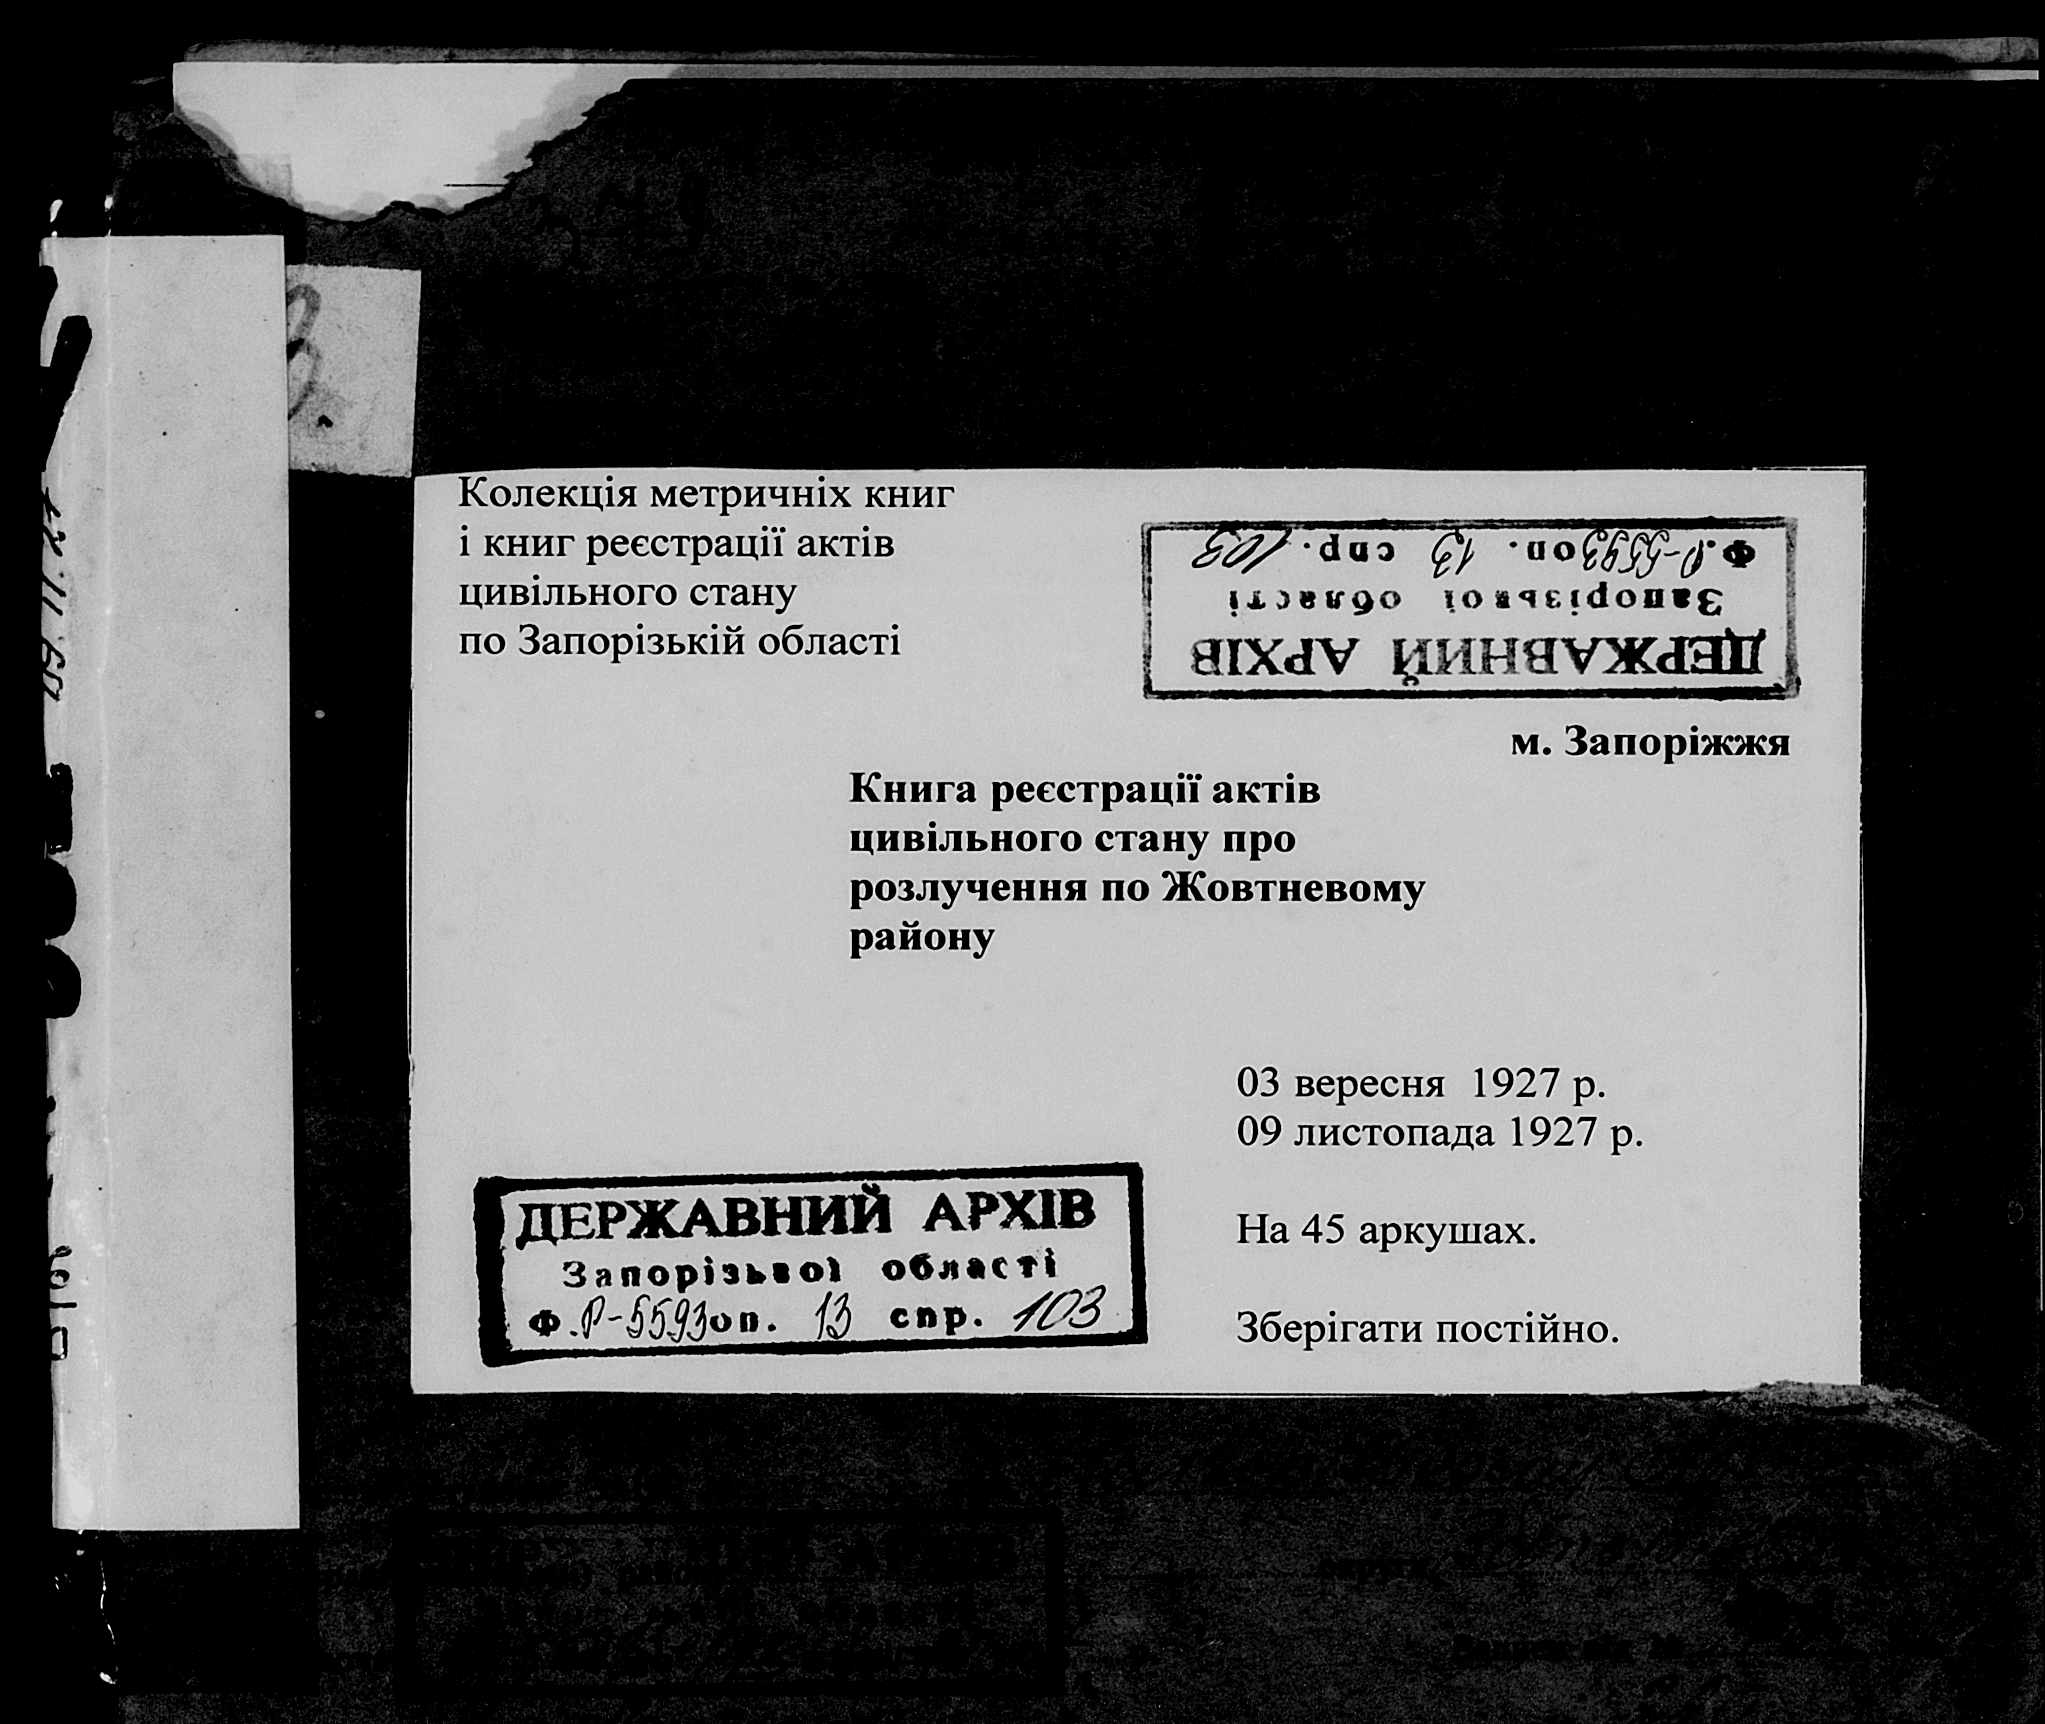 Колекція метричніх книг
і книг реєстрації актів
цивільного стану
по Запорізькій області
ДЕРЖАВНИЙ АРХІВ
Запорізької області
Ф. Р-5593 оп. 13 спр. 103
м. Запоріжжя
Книга реєстрації актів
цивільного стану про
розлучення по Жовтневому
району
03 вересня 1927 р.
09 листопада 1927 р.
На 45 аркушах.
Зберігати постійно.
ДЕРЖАВНИЙ АРХІВ
Запорізької області
Ф. Р-5593 оп. 13 спр. 103
09.11.27